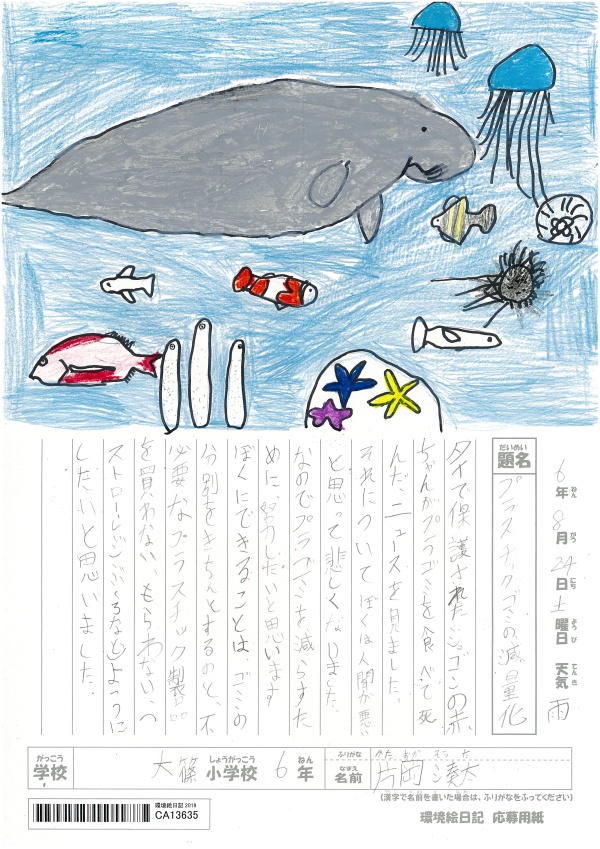 6年 8月 24日 土曜日 天気 雨
ねん がつ にち ようび てんき
だいめい
題名 プラスチックゴミの減量化
タイで保護されたジュゴンの赤
ちゃんがプラゴミを食べて死
んだ、ニュースを見ました。
それについてぼくは人間が悪い
と思って悲しくなりました。
なのでプラゴミを減らすた
めに、努力したいと思います
ぼくにできることは、ゴミの
分別をきちんとするのと、不
必要なプラスチック製品
を買わない、もらわない、(
ストロー・レジぶくろなど)ように
したいと思いました。
がっこう しょうがっこう ねん
学校 大篠 小学校 6年
ふりがな かた おか そうた
なまえ
名前 片岡 湊太
(漢字で名前を書いた場合は、ふりがなをふってください)
環境絵日記 2019
CA13635
環境絵日記 応募用紙